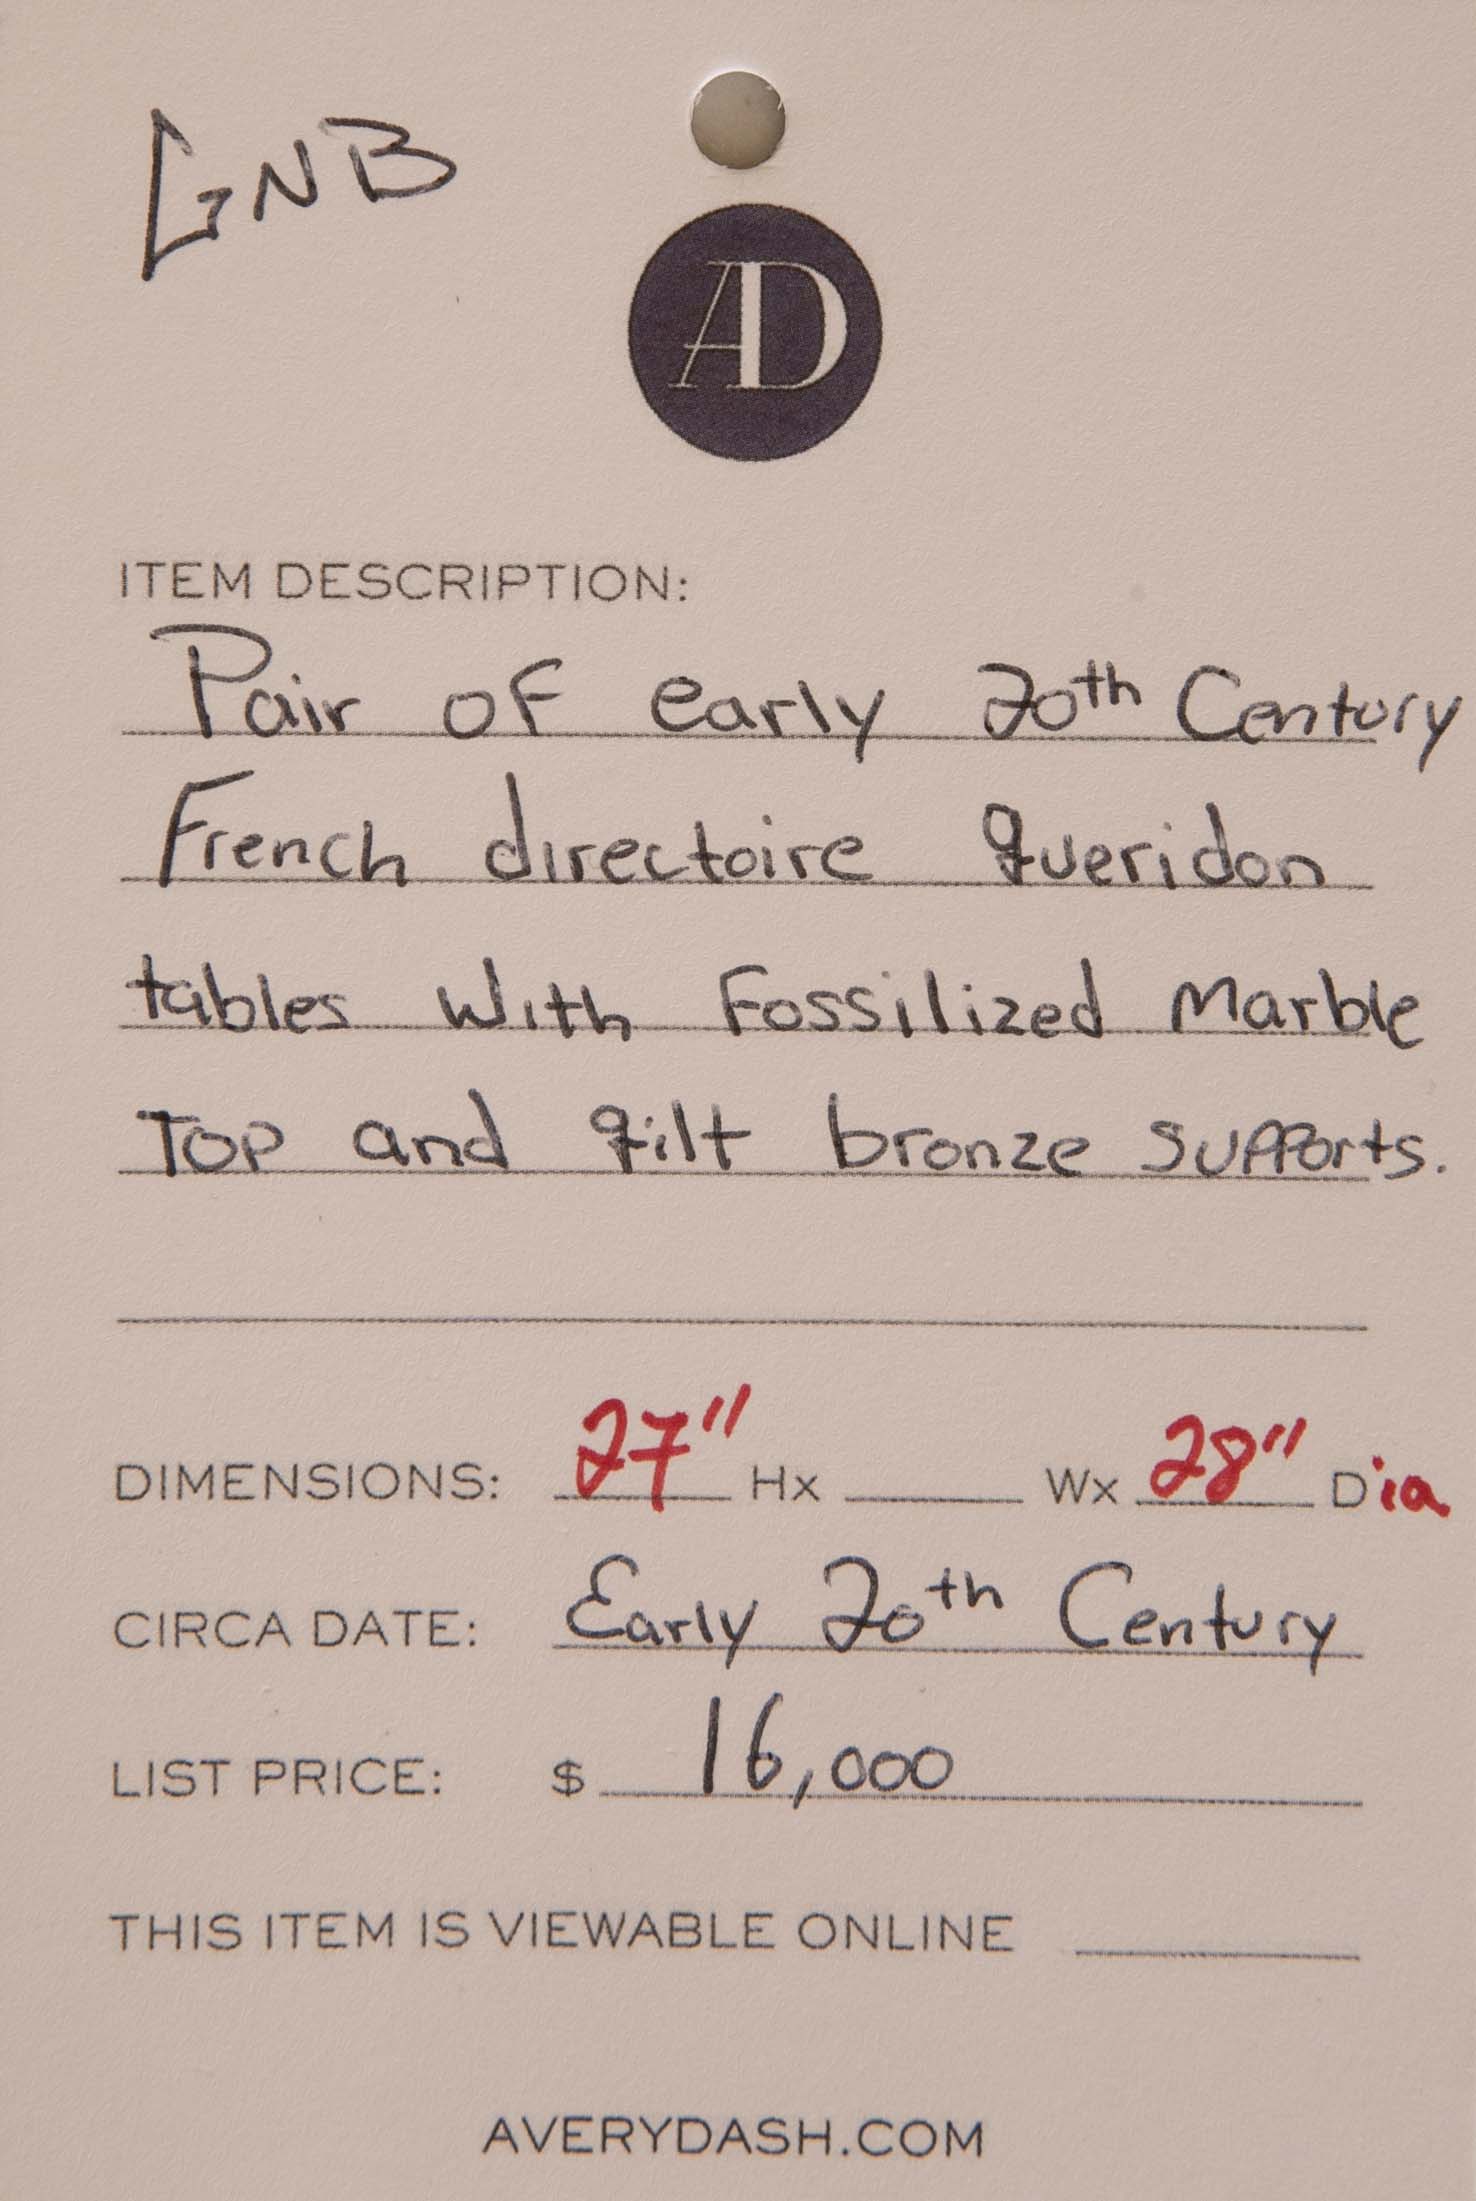 GNB
AD
ITEM DESCRIPTION:
Pair of early 20th Century
French directoire gueridon
tables with Fossilized Marble
Top and gilt bronze supports.
DIMENSIONS: 27" Hx Wx 28" Dia
CIRCA DATE: Early 20th Century
LIST PRICE: $ 16,000
THIS ITEM IS VIEWABLE ONLINE
AVERYDASH.COM